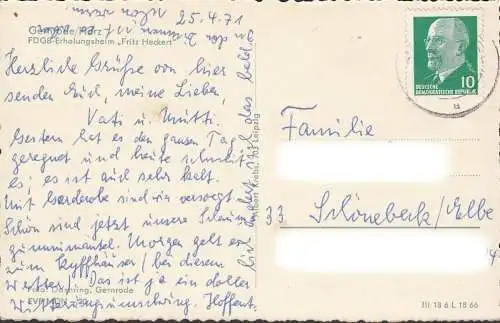 25.4.71
Gernrode/Harz
FDGB-Erholungsheim „Fritz Heckert"
Herzliche Grüße von hier
senden Euch, meine Lieben,
Vati u. Mutti.
Gestern hat es den ganzen Tag
geregnet und heute schneit
es; es ist auch sehr kalt.
Mit Garderobe sind wir versorgt.
Schön sind jetzt unsere Schaum-
gummimäntel. Morgen geht es
zum Kyffhäuser (bei diesem
Wetter). Das ist ja ein toller
Witterungsumschwung. Hoffent-
ändert sich das bald.
Foto: Döring, Gernrode
Krebs, 703 Leipzig
10
DEUTSCHE
DEMOKRATISCHE REPUBLIK
Familie
33 Schönebeck/Elbe
III 18 6 L 18 66